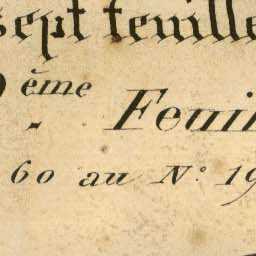 sept feuille
ème Feui
60 au N° 19